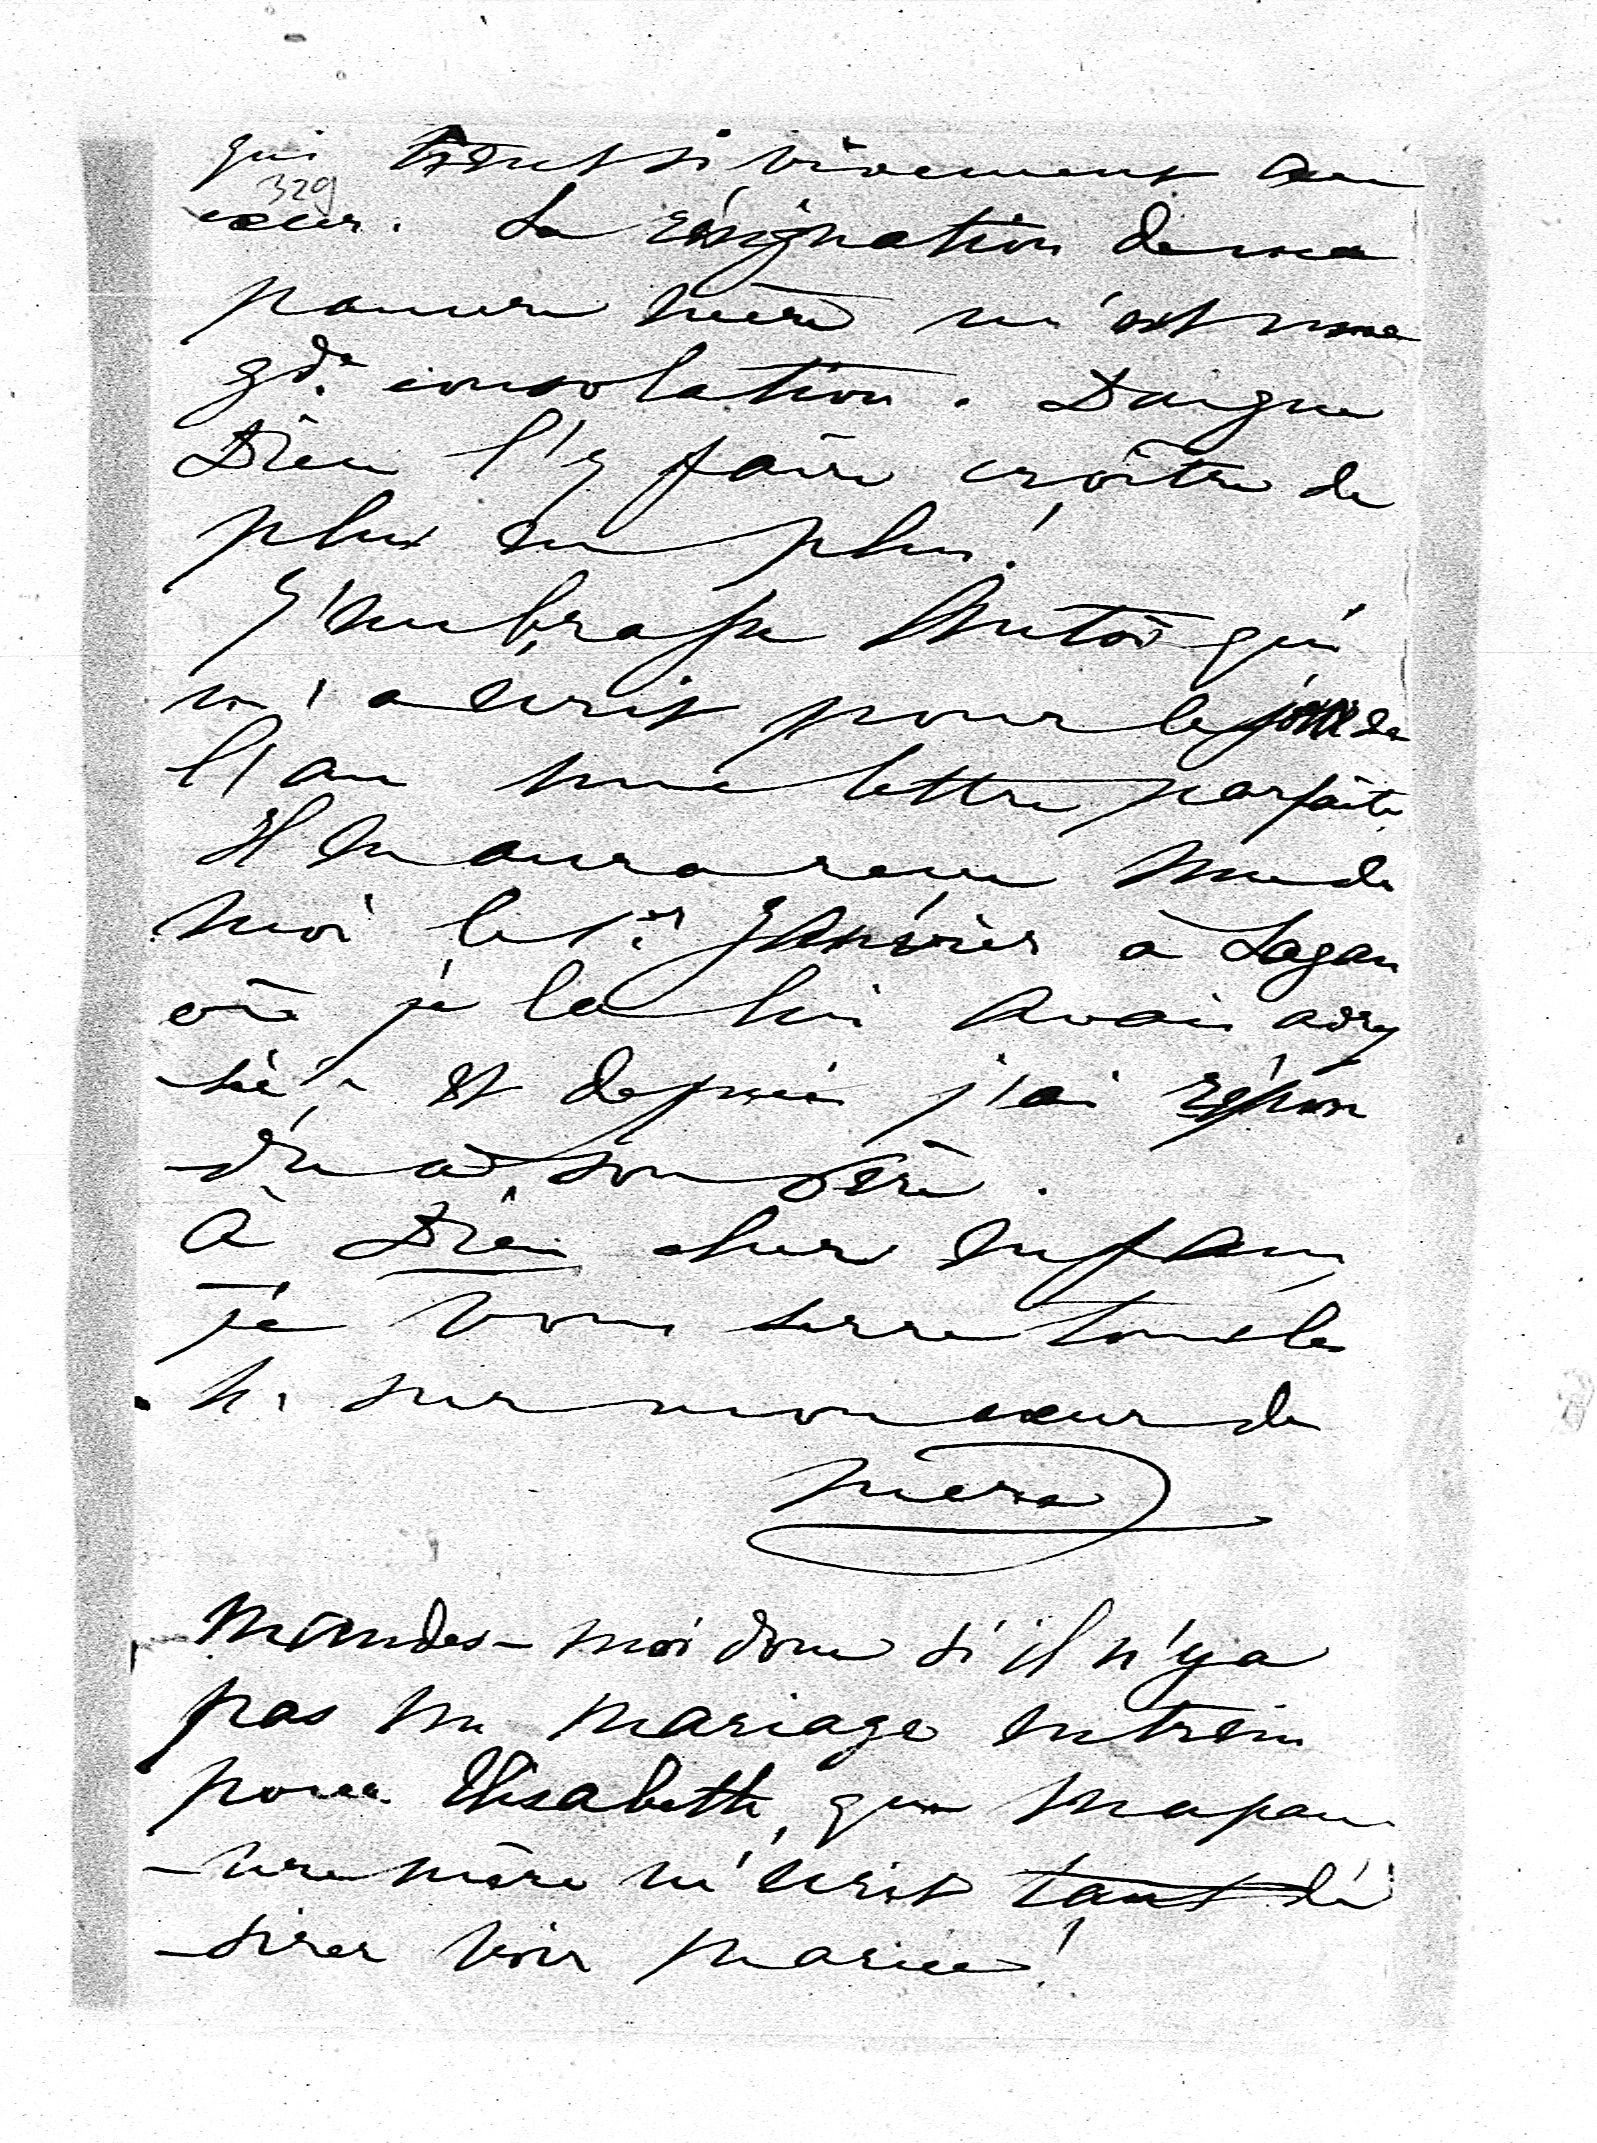 qui tient si vivement au
329
cœur. La résignation de ma
pauvre mère m'est une
gde consolation. Daigne
Dieu l'y faire croître de
plus en plus!
J'embrasse Antoi qui
m'a écrit pour le jour de
l'an une lettre parfaite
Il en aura reçu une de
moi le 1er Janvier à Sagan
où je la lui avais adres
-sée, et depuis j'ai répon
-du à son père.
à Dieu chers enfans,
je vous serre tous les
h. sur mon cœur de
mère
Mandes-moi donc si il n'y a
pas un mariage entrain
pour Elisabeth, que ma pau
-vre mère m'écrit tant dé
-sirer voir mariée!